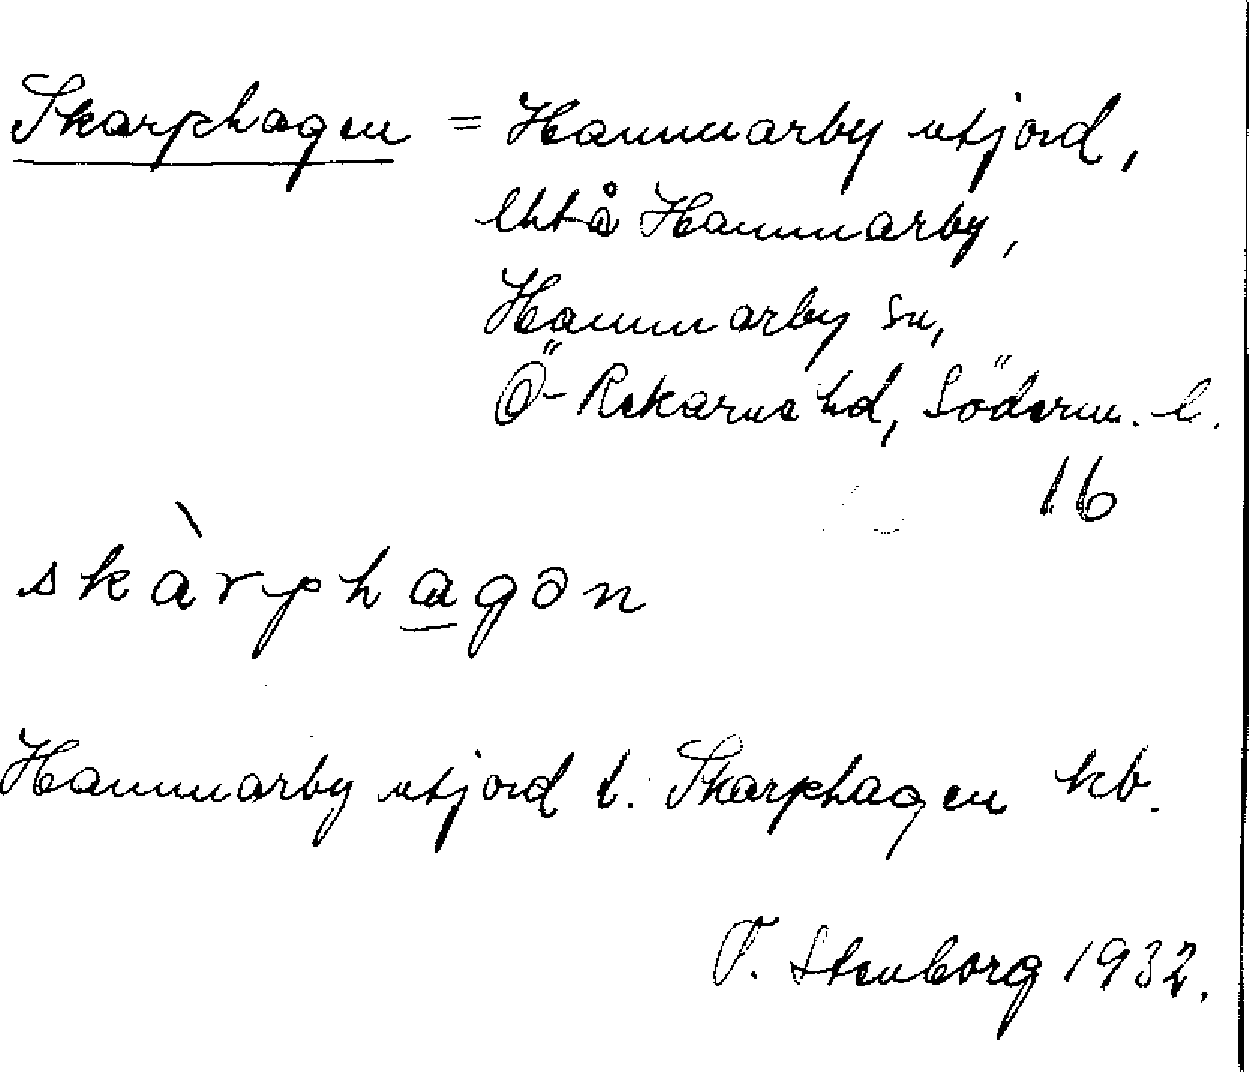 Skarphagen = Hammarby utjord,
lht å Hammarby,
Hammarby sn,
Ö-Rekarne hd, Söderm. l.
16
skàrphagən
Hammarby utjord t. Skarphagen kb.
T. Stenborg 1932.